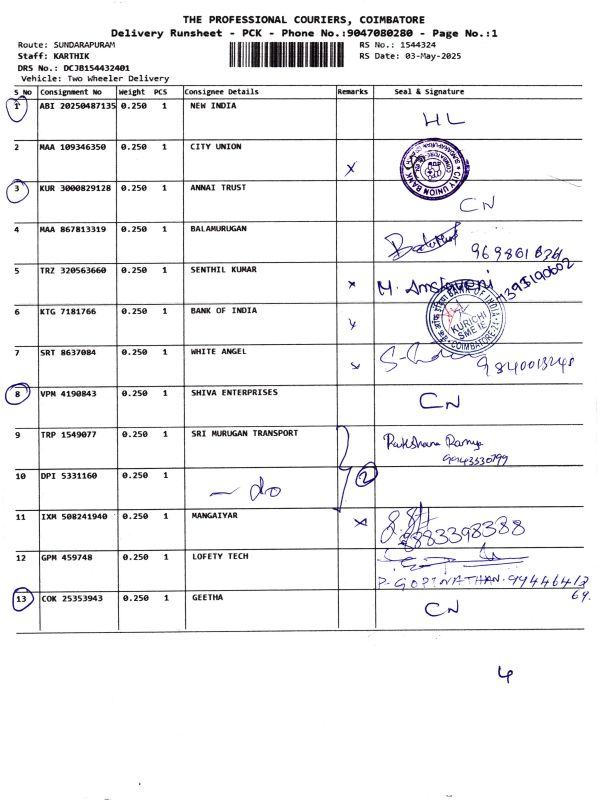 THE PROFESSIONAL COURIERS, COIMBATORE
Delivery Runsheet - PCK - Phone No.:9047080280 - Page No.:1
Route: SUNDARAPURAM RS No.: 1544324
Staff: KARTHIK RS Date: 03-May-2025
DRS No.: DCJB154432401
Vehicle: Two Wheeler Delivery
S No Consignment No Weight PCS Consignee Details Remarks Seal & Signature
1 ABI 20250487135 0.250 1 NEW INDIA HL
2 MAA 109346350 0.250 1 CITY UNION x CITY UNION BANK
3 KUR 3000829128 0.250 1 ANNAI TRUST CN
4 MAA 867813319 0.250 1 BALAMURUGAN
5 TRZ 320563660 0.250 1 SENTHIL KUMAR x M. 7395190602
6 KTG 7181766 0.250 1 BANK OF INDIA x BANK OF INDIA KURICHI SME COIMBATORE-21
7 SRT 8637084 0.250 1 WHITE ANGEL x 9840013248
8 VPM 4190843 0.250 1 SHIVA ENTERPRISES CN
9 TRP 1549077 0.250 1 SRI MURUGAN TRANSPORT Ramya
10 DPI 5331160 0.250 1 — do 2
11 IXM 508241940 0.250 1 MANGAIYAR x 8883398388
12 GPM 459748 0.250 1 LOFETY TECH P. GOPINATHAN. 9944641369.
13 COK 25353943 0.250 1 GEETHA CN
4